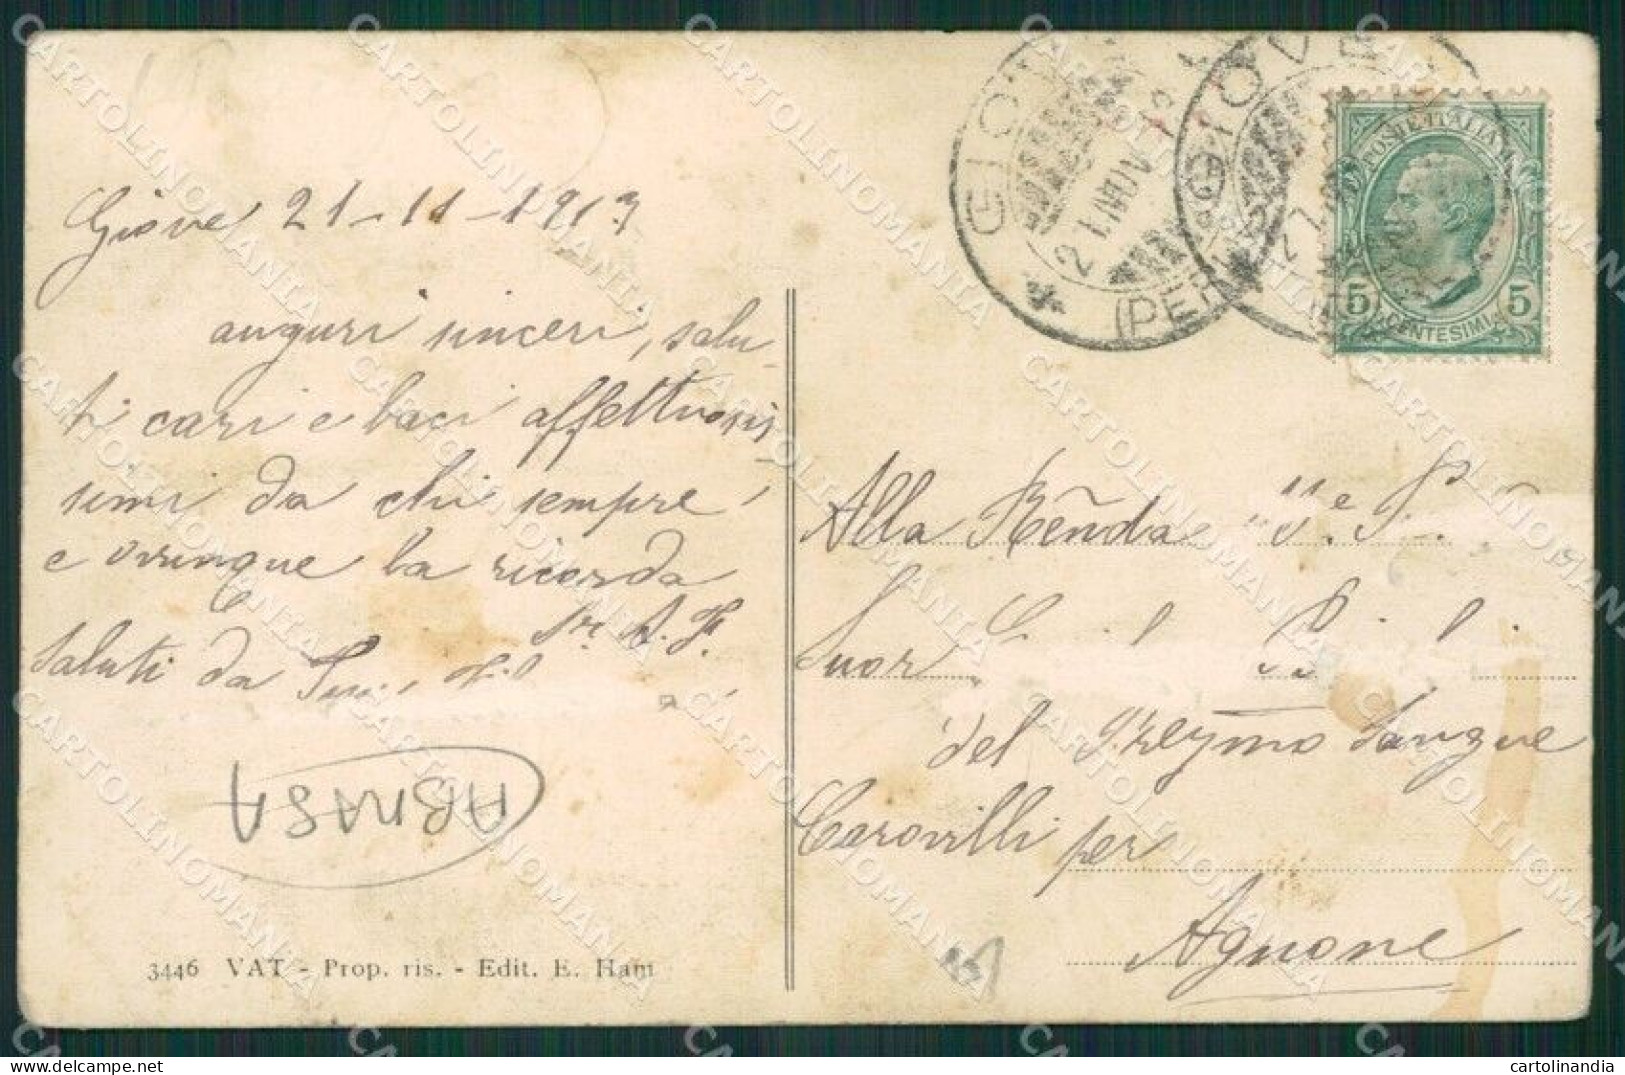 Giove 21-11-1913
auguri sinceri, salu-
ti cari e baci affettuosis
simi da chi sempre
e ovunque la ricorda
Sr A. F.
Saluti da
ABRASA
3446 VAT - Prop. ris. - Edit. E. Ham
GIOVE
21 NOV 13
(PER
GIOVE
POSTE ITALIANE
5 CENTESIMI 5
Alla Reñda
Suor
del Preζmo Sangue
Carovilli per
Agnone
CARTOLINOMANIA
cartolinandia